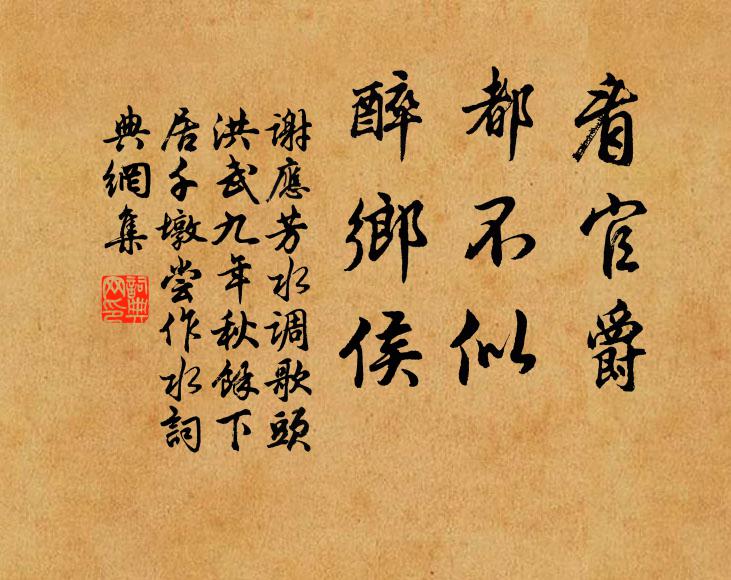 看官爵
都不似
醉鄉侯
謝應芳水调歌頭
洪武九年秋餘下
居千墩尝作水詞
典網集
詞典
网印